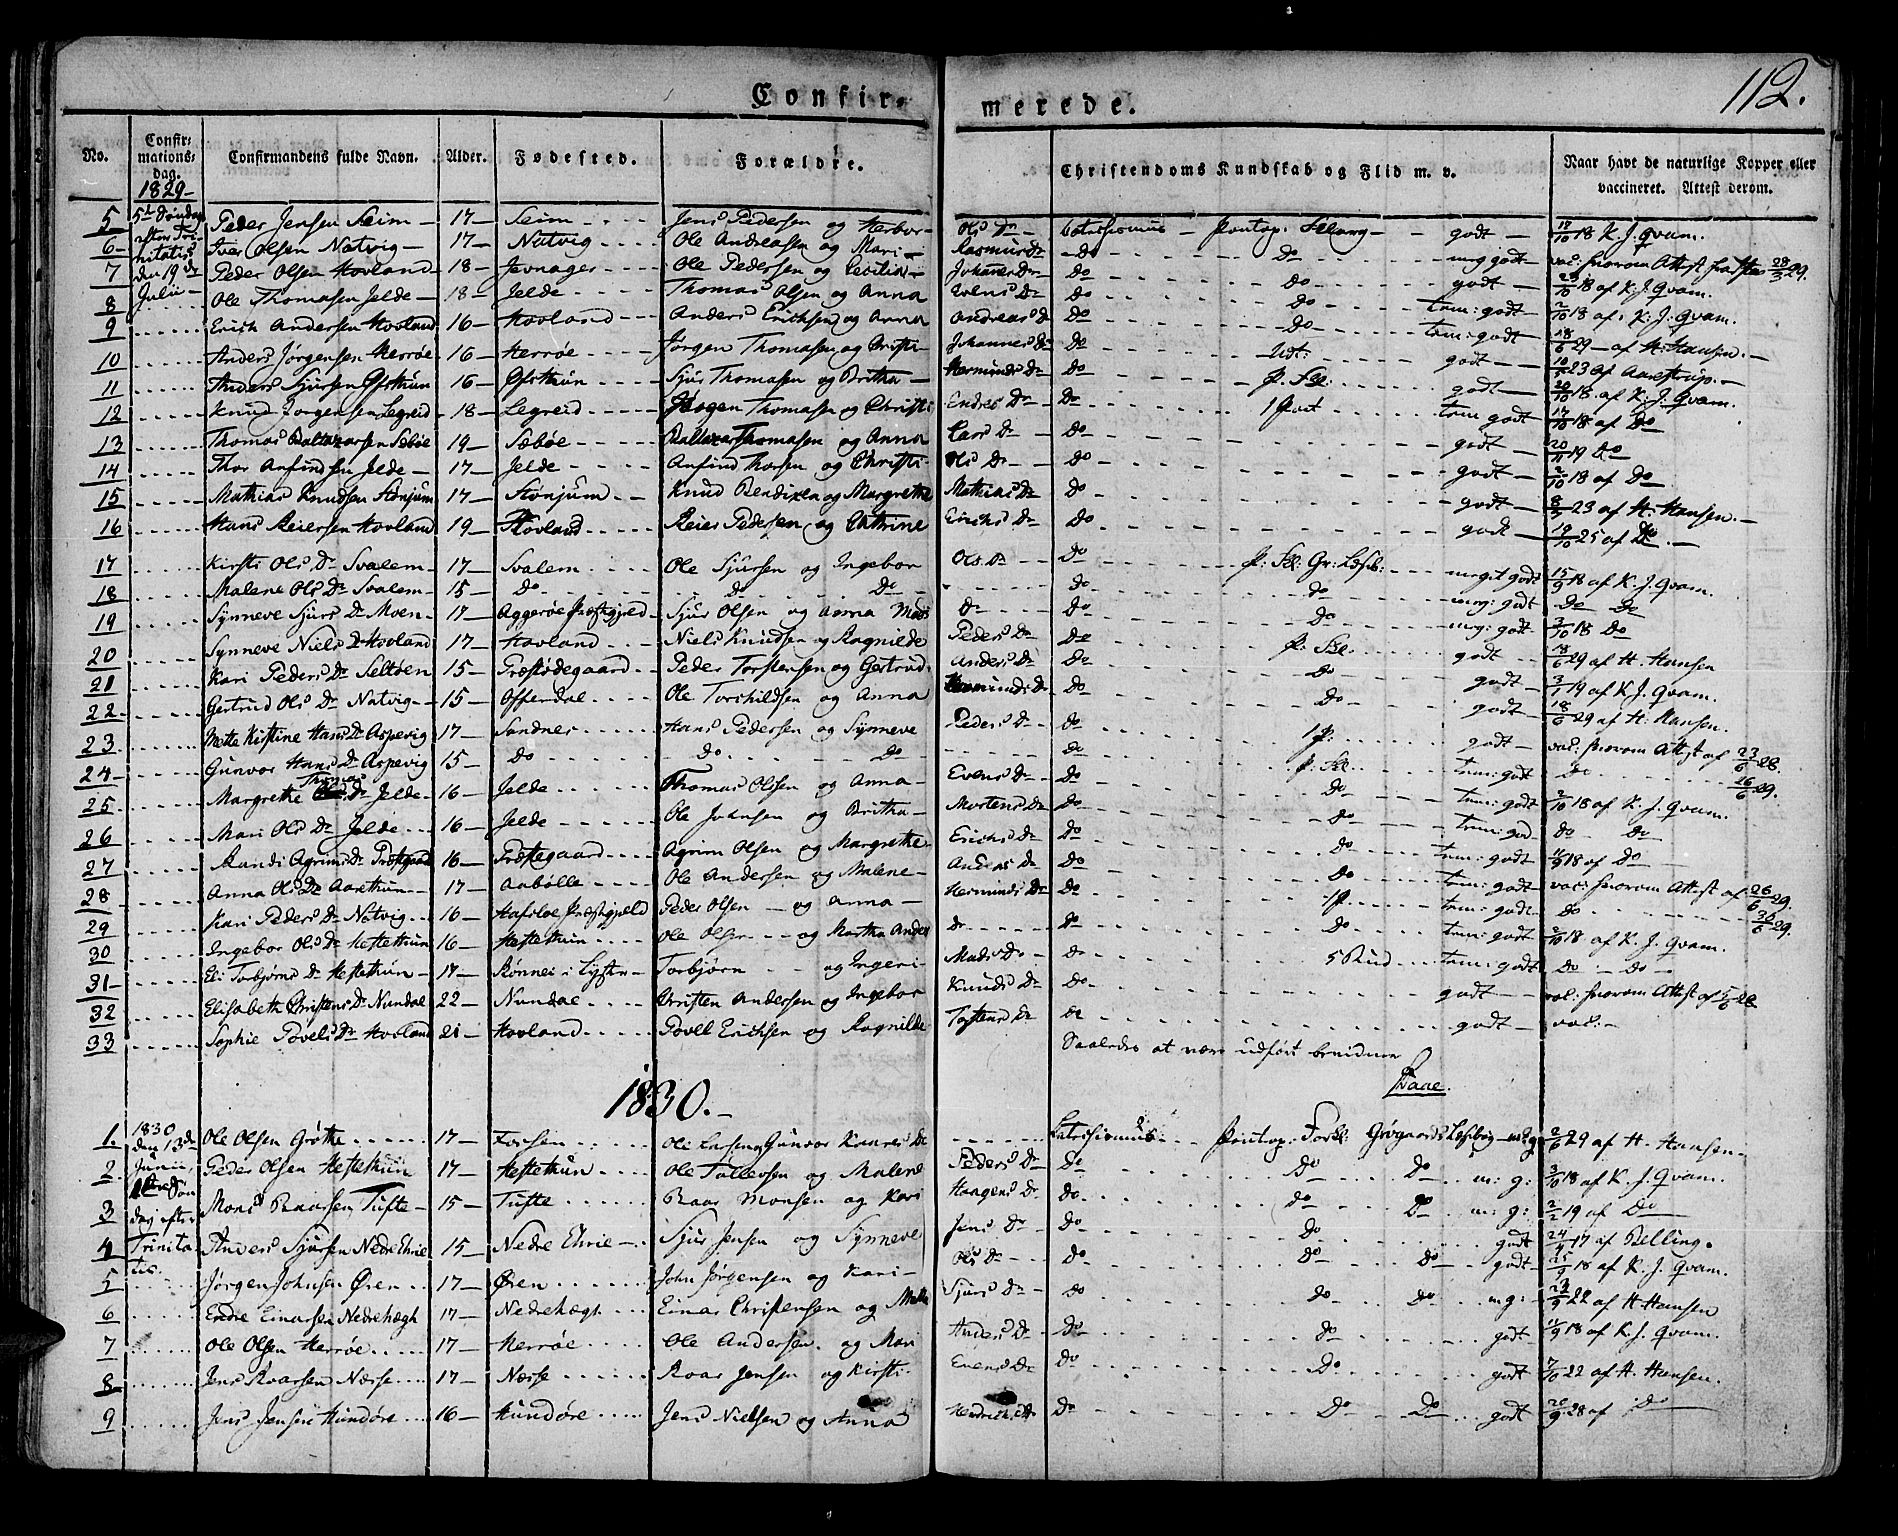 112.
Confirmerede.
No. Confirmationsdag. Confirmandens fulde Navn. Alder. Fødested. Forældre. Christendoms Kundskab og Flid m. v. Naar havt de naturlige Kopper eller vaccineret. Attest derom.
1829
5te Søndag efter Trinitatis den 19de Julii
5 Peder Jensen Seim 17 Seim Jens Pedersen og Herbor Ols Dr Catechismus Pontop: godt 18 K. J. Qvam.
6 Iver Olsen Natvig 17 Natvig Ole Andreassen og Mari Rasmus Dr Do Do meg godt vac: hvorom Attest 29.
7 Peder Olsen Hovland 18 Jevnager Ole Pedersen og Cecilia Johannes Dr Do Do godt 18 af K. J. Qvam.
8 Ole Thomassen Jelde 18 Jelde Thomas Olsen og Anna Do Do tem: godt 18 af K. J. Qvam.
9 Erich Andersen Hovland 16 Hovland Anders Erichsen og Anna Andreas D Do Do tem: godt 29 af H: Hansen.
10 Anders Jørgensen Herrøe 16 Herrøe Jørgen Thomasen og Christi Johannes Dr Do Udt: godt 23 af Aarestrup.
11 Anders Sjursen Ofsthun 16 Ofsthun Sjur Thomasen og Britha Hermunds Dr Do godt 18. af K. J. Qvam.
12 Knud Jørgensen Legreid 18 Legreid Thomassen og Christi Endres Dr Do tem godt 18 af Do
13 Thomas Baltzarsen Sæbøe 19 Sæbøe Baltzar Thomassen og Anna Lars Dr Do godt 19 Do
14 Thor Anfindsen Jelde 17 Jelde Anfind Thorsen og Christi Ols Dr Do godt 18 af Do
15 Mathias Knudsen Stønjum 17 Stønjum Knud Bendixen og Margrethe Mathias Dr Do godt 23 af H. Hansen.
16 Hans Reiersen Hovland 19 Hovland Reier Pedersen og Cathrine Erichs Dr Do godt 25 af Do.
17 Kirsti Ols Dr Svalem 17 Svalem Ole Sjursen og Ingebor Ols Dr Do meget godt 18 af K. J. Qvam.
18 Malene Ols Dr Svalem 15 Do do Do Do do meg: godt Do Do
19 Synneve Sjurs Dr Moen 17 Aggerøe Præstgjeld Sjur Olsen og Anna Mads Dr Do Do meg: godt 18 Do
20 Synneve Niels Dr Hovland 17 Hovland Niels Knudsen og Ragnilde Peders Dr Do godt 29 af H. Hansen
21 Kari Peders Dr Seltøen 15 Præstegaard Peder Torstensen og Gertrud Anders Dr Do Do godt 19 af K. J. Qvam.
22 Gertrud Ols Dr Natvig 15 Offerdal Ole Torchildsen og Anna Hermunds Dr Do Do godt 29 af H. Hansen.
23 Mette Kirstine Hans Dr Aspevig 17 Sandnes Hans Pedersen og Synneve Peders Dr Do godt vac: hvorom Attest af 28.
24 Gunvor Hans Dr Aspevig 15 Do do Do Do tem: godt Do 29.
25 Margrethe Thomas Dr Jelde 16 Jelde Thomas Olsen og Anna Evens Dr Do Do tem: godt 18 af K. J. Qvam.
26 Mari Ols Dr Jelde 16 Jelde Ole Johnsen og Britha Mortens Dr Do tem: god Do Do
27 Randi Agrims Dr Præstgaard 16 Præstegaard Agrim Olsen og Margrethe Erichs Dr Do Do tem: godt 18 af Do
28 Anna Ols Dr Aarethun 17 Aabølle Ole Andersen og Malene Anders Dr Do Do tem: godt vac: hvorom Attest af 29.
29 Kari Peders Dr Natvig 16 Hafsloe Præstgjæld Peder Olsen og Anna Hermunds Dr Do tem: godt Do 29.
30 Ingebor Ols Dr Hestethun 16 Hestethun Ole Olsen og Martha Anders Dr Do Do tem: godt 18 af K. J. Qvam.
31 Eli Torbjørns Dr Hestethun 17 Rønnei i Lyster Torbjørn og Ingeri Mads Dr Do tem: godt Do Do
32 Elisabeth Christens Dr Nundal 22 Nundal Christen Andersen og Ingebor Knuds Dr Do godt vac: hvorom Attest af 28
33 Sophie Povels Dr Hovland 21 Hovland Povel Erichsen og Ragnilde Do godt vac:
Saaledes at være udført bevidner
Daae.
1830.
1830 den 13de Junii, Søndag efter Trinitatis.
1. Ole Olsen Grøthe 17 Ole Larsen, Gunvor Dr Catechismus Pontop: 29 af H. Hansen
2. Peder Olsen Hestethun 17 Hestethun Ole Tollevsen og Malene Peders Dr Do Do Do m: g: 18 af K. J. Qvam.
3 Mons Baarsen Tufte 15 Tufte Baar Monsen og Kari Haagens Dr Do Do Do m: g: 19 af Do
4 Anders Sjursen Nedre Ehrie 15 Nedre Ehrie Sjur Jensen og Synneve Jens Dr Do Do godt 17 af Belling.
5 Jørgen Johnsen Øren 17 Øren John Jørgensen og Kari Ols Dr Do Do Do godt 18 af K. J. Qvam.
6 Endre Einarsen Nedrehægh 17 Nedrehægh Einar Christensen og Sjurs Dr Do Do Do mg: 22 af H Hansen
7 Ole Olsen Herrøe 17 Herrøe Ole Andersen og Mari Anders Dr Do Do godt 18 af K. J. Qvam.
8 Jens Roarsen Næsse 17 Næsse Roar Jensen og Kirsti Evens Dr Do Do godt 22 af H. Hansen.
9 Jens Jensen Hundøre 16 Hundøre Jens Nielsen og Anna Do Do Do godt 28 af Do